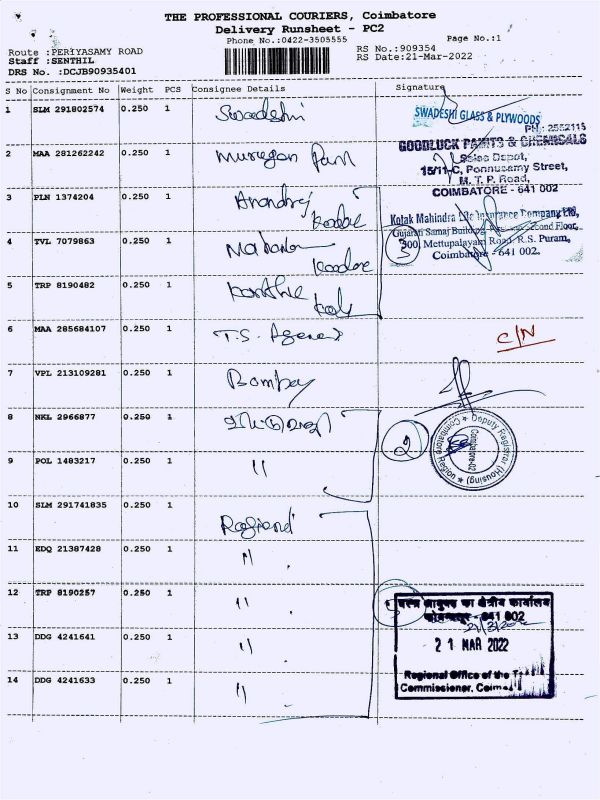 THE PROFESSIONAL COURIERS, Coimbatore
Delivery Runsheet - PC2
Phone No.:0422-3505555
Page No.:1
Route :PERIYASAMY ROAD
Staff :SENTHIL
DRS No. :DCJB90935401
RS No.:909354
RS Date:21-Mar-2022
S No Consignment No Weight PCS Consignee Details Signature
1 SLM 291802574 0.250 1 Swadeshi
SWADESHI GLASS & PLYWOODS
PH.: 2552115
2 MAA 281262242 0.250 1 Murugan
GOODLUCK PAINTS & CHEMICALS
Sales Depot,
15/11-C, Ponnusamy Street,
M. T. P. Road,
COIMBATORE - 641 002
3 PLN 1374204 0.250 1 Anandraj
Kotak Mahindra Life Insurance Company Ltd,
Gujarati Samaj Building, Second Floor,
300, Mettupalayam Road, R.S. Puram,
Coimbatore - 641 002.
3
4 TVL 7079863 0.250 1
5 TRP 8190482 0.250 1
6 MAA 285684107 0.250 1 T.S. Agencies
C/N
7 VPL 213109281 0.250 1 Bombay
8 NKL 2966877 0.250 1
2
Deputy Registrar (Housing)
Coimbatore Region
Coimbatore-02
9 POL 1483217 0.250 1 "
10 SLM 291741835 0.250 1
11 EDQ 21387428 0.250 1 "
12 TRP 8190257 0.250 1 "
5
वस्त्र आयुक्त का क्षेत्रीय कार्यालय
कोयम्बत्तूर - 641 002
21/3/2022
21 MAR 2022
Regional Office of the
Commissioner,
13 DDG 4241641 0.250 1 "
14 DDG 4241633 0.250 1 "